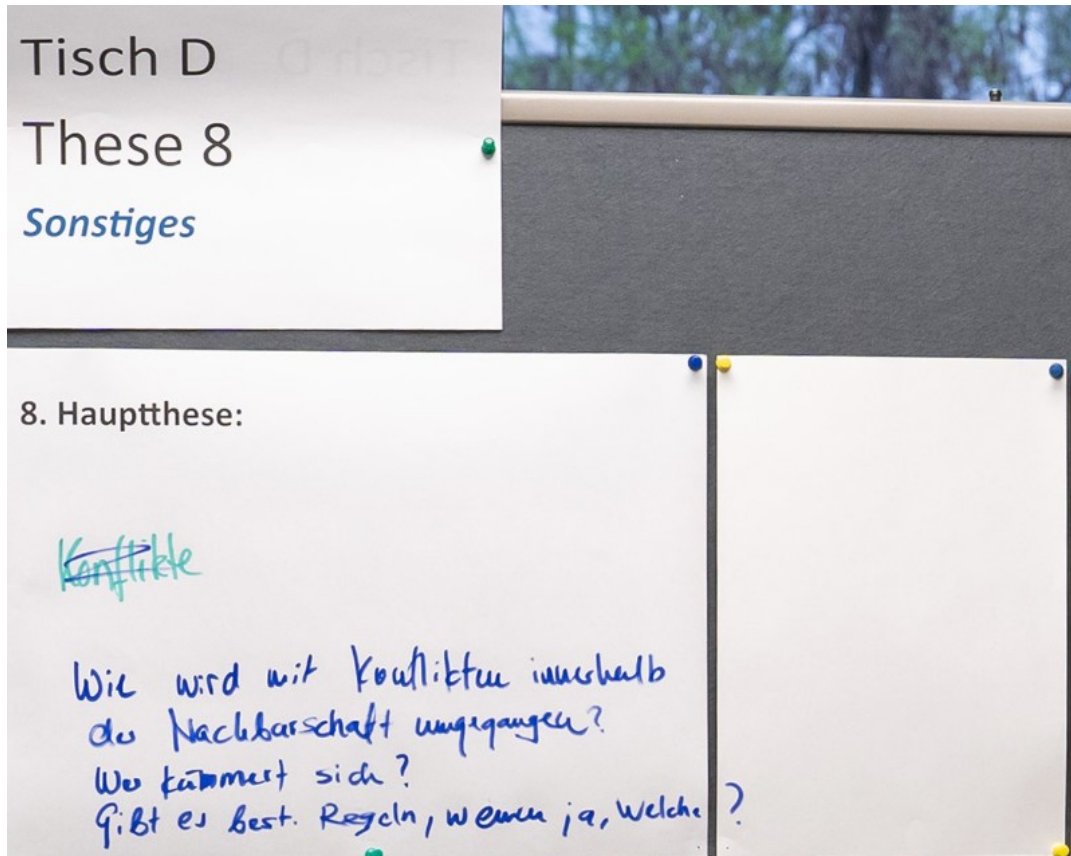 Tisch D
These 8
Sonstiges
8. Hauptthese:
Konflikte
Wie wird mit Konflikten innerhalb
der Nachbarschaft umgegangen?
Wer kümmert sich?
Gibt es best. Regeln, wenn ja, welche?